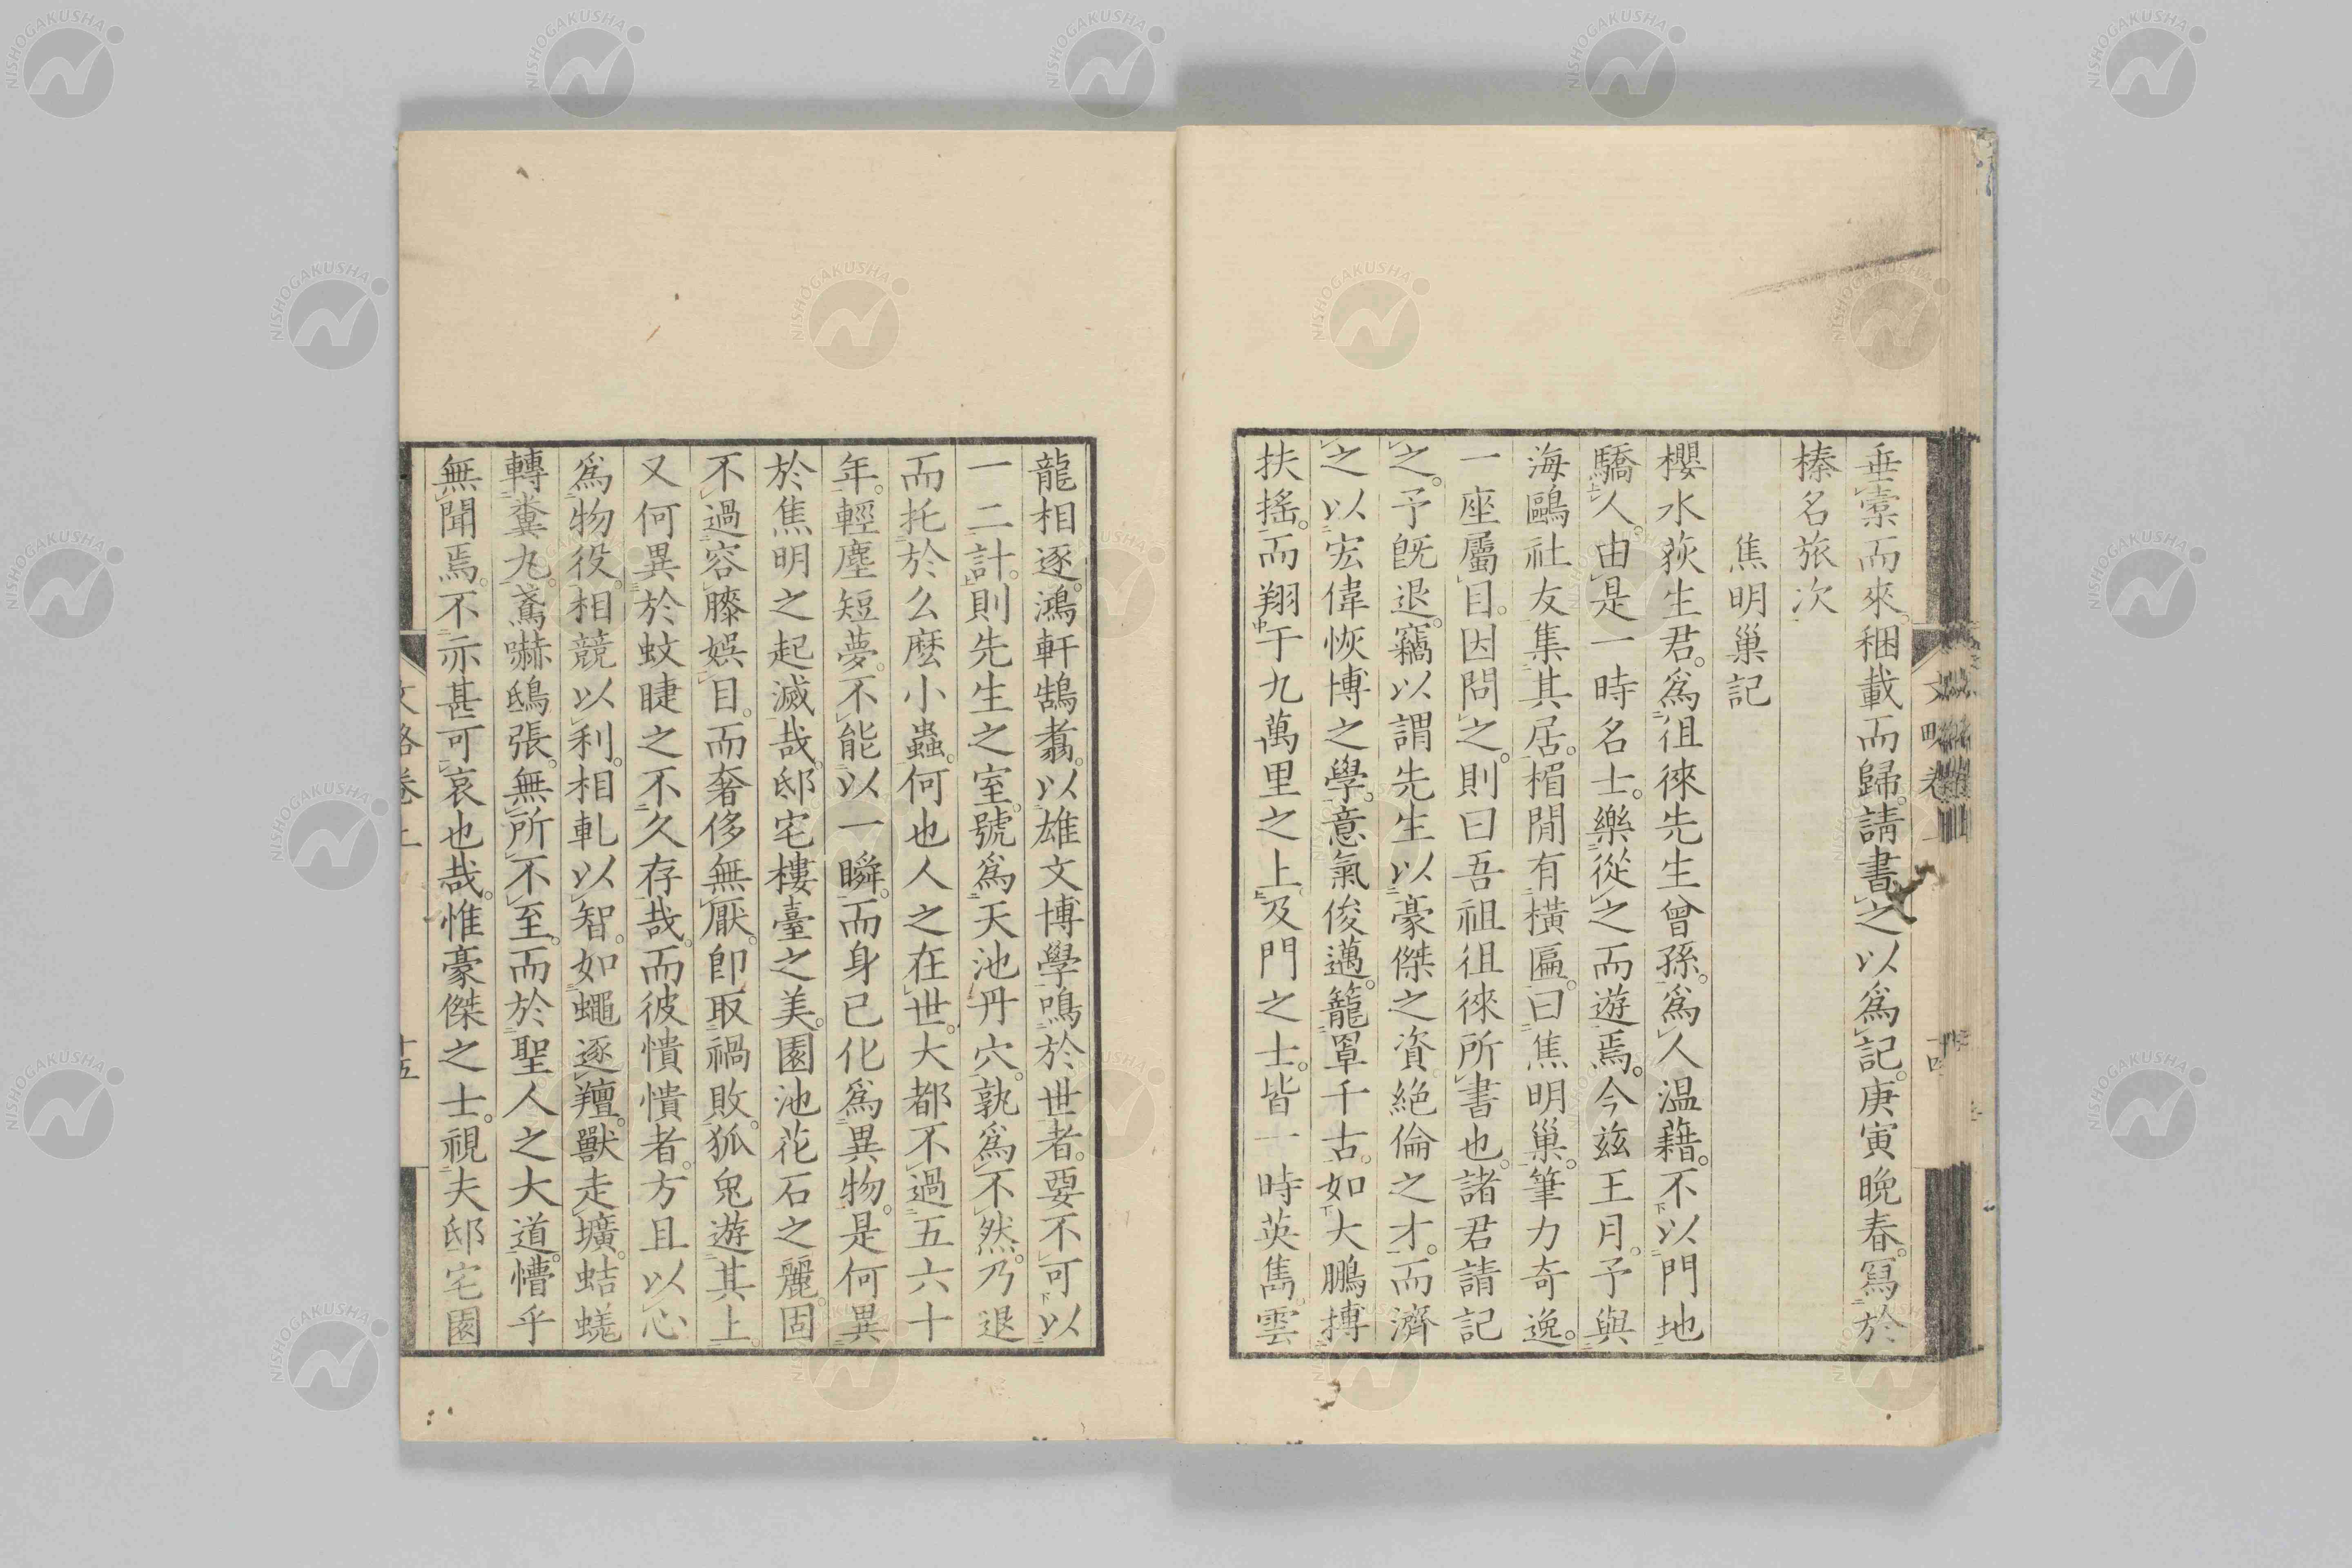 垂橐而來。稛載而歸。請書之以爲記。庚寅晚春。冩於
榛名旅次
焦明巢記
櫻水荻生君。爲徂徠先生曾孫。爲人温藉。不以門地
驕人。由是一時名士。樂從之而遊焉。今茲王月。予與
海鷗社友集其居。楣閒有橫匾。曰焦明巢。筆力奇逸。
一座屬目。因問之。則曰吾祖徂徠所書也。諸君請記
之。予旣退。竊以謂先生以豪傑之資絕倫之才。而濟
之以宏偉恢博之學。意氣俊邁。籠罩千古。如大鵬摶
扶搖。而翔于九萬里之上。及門之士。皆一時英雋。雲
龍相逐。鴻軒鵠翥。以雄文博學鳴於世者。要不可以
一二計。則先生之室。號爲天池丹穴。孰爲不然。乃退
而托於么麼小蟲。何也人之在世。大都不過五六十
年。輕塵短夢。不能以一瞬。而身已化爲異物。是何異
於焦明之起滅哉。邸宅樓臺之美。園池花石之麗。固
不過容膝娛目。而奢侈無厭。卽取禍敗。狐兔遊其上。
又何異於蚊睫之不久存哉。而彼憒憒者。方且以心
爲物役。相競以利。相軋以智。如蠅逐羶。獸走壙。蛣蜣
轉糞丸。鳶嚇鴟張。無所不至。而於聖人之大道。懵乎
無聞焉。不亦甚可哀也哉。惟豪傑之士。視夫邸宅園
文略卷上
十四
文略卷上
十五
NISHOGAKUSHA